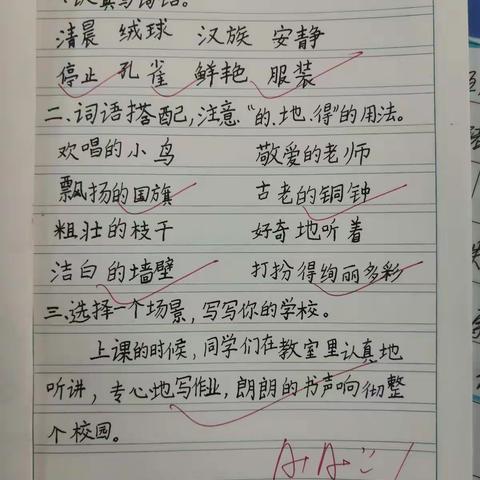 清晨 绒球 汉族 安静
停止 孔雀 鲜艳 服装
二、词语搭配,注意“的、地、得”的用法。
欢唱的小鸟 敬爱的老师
飘扬的国旗 古老的铜钟
粗壮的枝干 好奇地听着
洁白的墙壁 打扮得绚丽多彩
三、选择一个场景,写写你的学校。
上课的时候,同学们在教室里认真地
听讲,专心地写作业,朗朗的书声响彻整
个校园。
A+A+